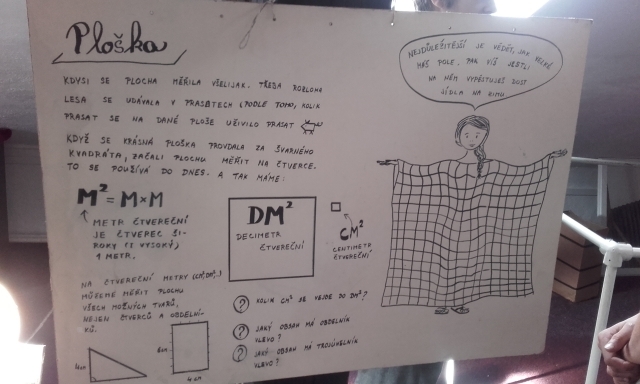 Ploška
KDYSI SE PLOCHA MĚŘILA VŠELIJAK. TŘEBA ROZLOHA
LESA SE UDÁVALA V PRASETECH (PODLE TOHO, KOLIK
PRASAT SE NA DANÉ PLOŠE UŽIVILO PRASAT
KDYŽ SE KRÁSNÁ PLOŠKA PROVDALA ZA ŠVARNÉHO
KVADRÁTA, ZAČALI PLOCHU MĚŘIT NA ČTVERCE.
TO SE POUŽÍVÁ DO DNES. A TAK MÁME:
M² = M×M
METR ČTVEREČNÍ
JE ČTVEREC ŠI-
ROKÝ (I VYSOKÝ)
1 METR.
DM²
DECIMETR
ČTVEREČNÍ
CM²
CENTIMETR
ČTVEREČNÍ
NA ČTVEREČNÍ METRY (CM², DM²,..)
MŮŽEME MĚŘIT PLOCHU
VŠECH MOŽNÝCH TVARŮ,
NEJEN ČTVERCŮ A OBDÉLNÍ-
KŮ.
4 CM
6 CM
4 CM
? KOLIK CM² SE VEJDE DO DM²?
? JAKÝ OBSAH MÁ OBDÉLNÍK
VLEVO?
? JAKÝ OBSAH MÁ TROJÚHELNÍK
VLEVO?
NEJDŮLEŽITĚJŠÍ JE VĚDĚT, JAK VELKÉ
MÁŠ POLE. PAK VÍŠ JESTLI
NA NĚM VYPĚSTUJEŠ DOST
JÍDLA NA ZIMU